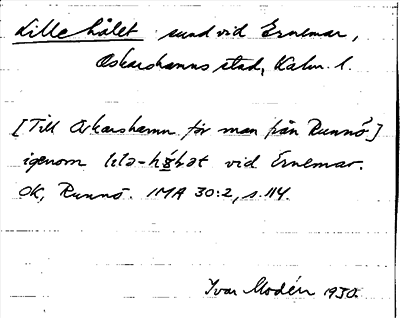 Lillehålet sund vid Ernemar,
Oskarshamns stad, Kalm. l.
[Till Oskarshamn för man från Runnö]
igenom vid Ernemar.
OK, Runnö. IMA 30:2, s. 114.
Ivar Modéer 1930.